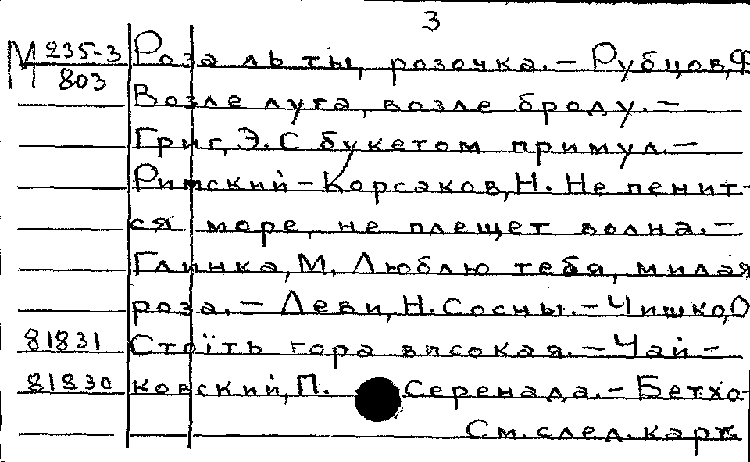 3
М 235-3 Роза ль ты, розочка. – Рубцов, Ф
803
Возле луга, возле броду. –
Григ, Э. С букетом примул. –
Римский-Корсаков, Н. Не пенит-
ся море, не плещет волна. –
Глинка, М. Люблю тебя, милая
роза. – Леви, Н. Сосны. – Чишко, О
81831 Стоїть гора високая. – Чай-
81830 ковский, П. Серенада. – Бетхо-
См. след. карт